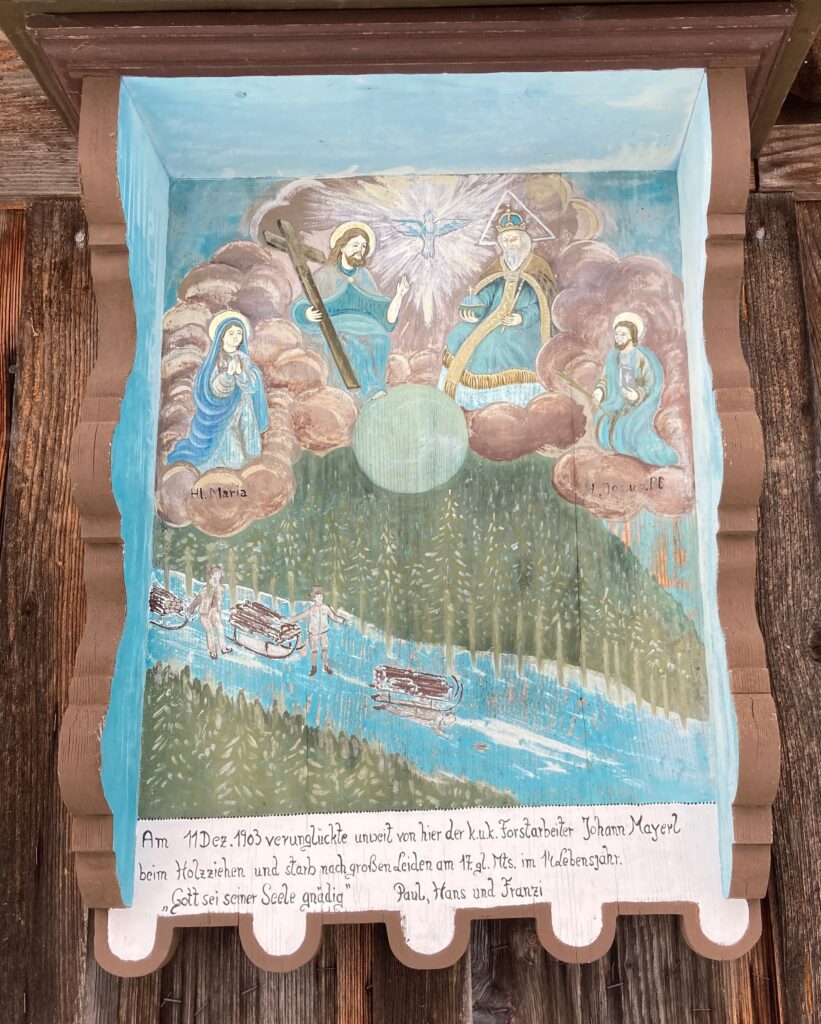 Hl. Maria
H.
Am 11 Dez. 1903 verunglückte unweit von hier der k.u.k. Forstarbeiter Johann Mayerl
beim Holzziehen und starb nach großen Leiden am 17. gl. Mts. im 14 Lebensjahr.
„Gott sei seiner Seele gnädig" Paul, Hans und Franzi